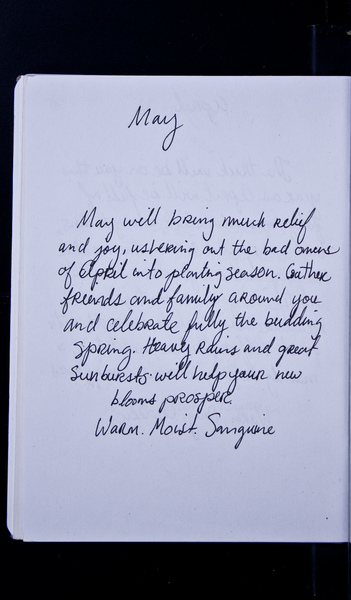 May
May will bring much relief
and joy, ushering out the bad omens
of April into planting season. Gather
friends and family around you
and celebrate fully the budding
Spring. Heavy Rains and great
Sunbursts will help your new
blooms prosper.
Warm. Moist. Sanguine